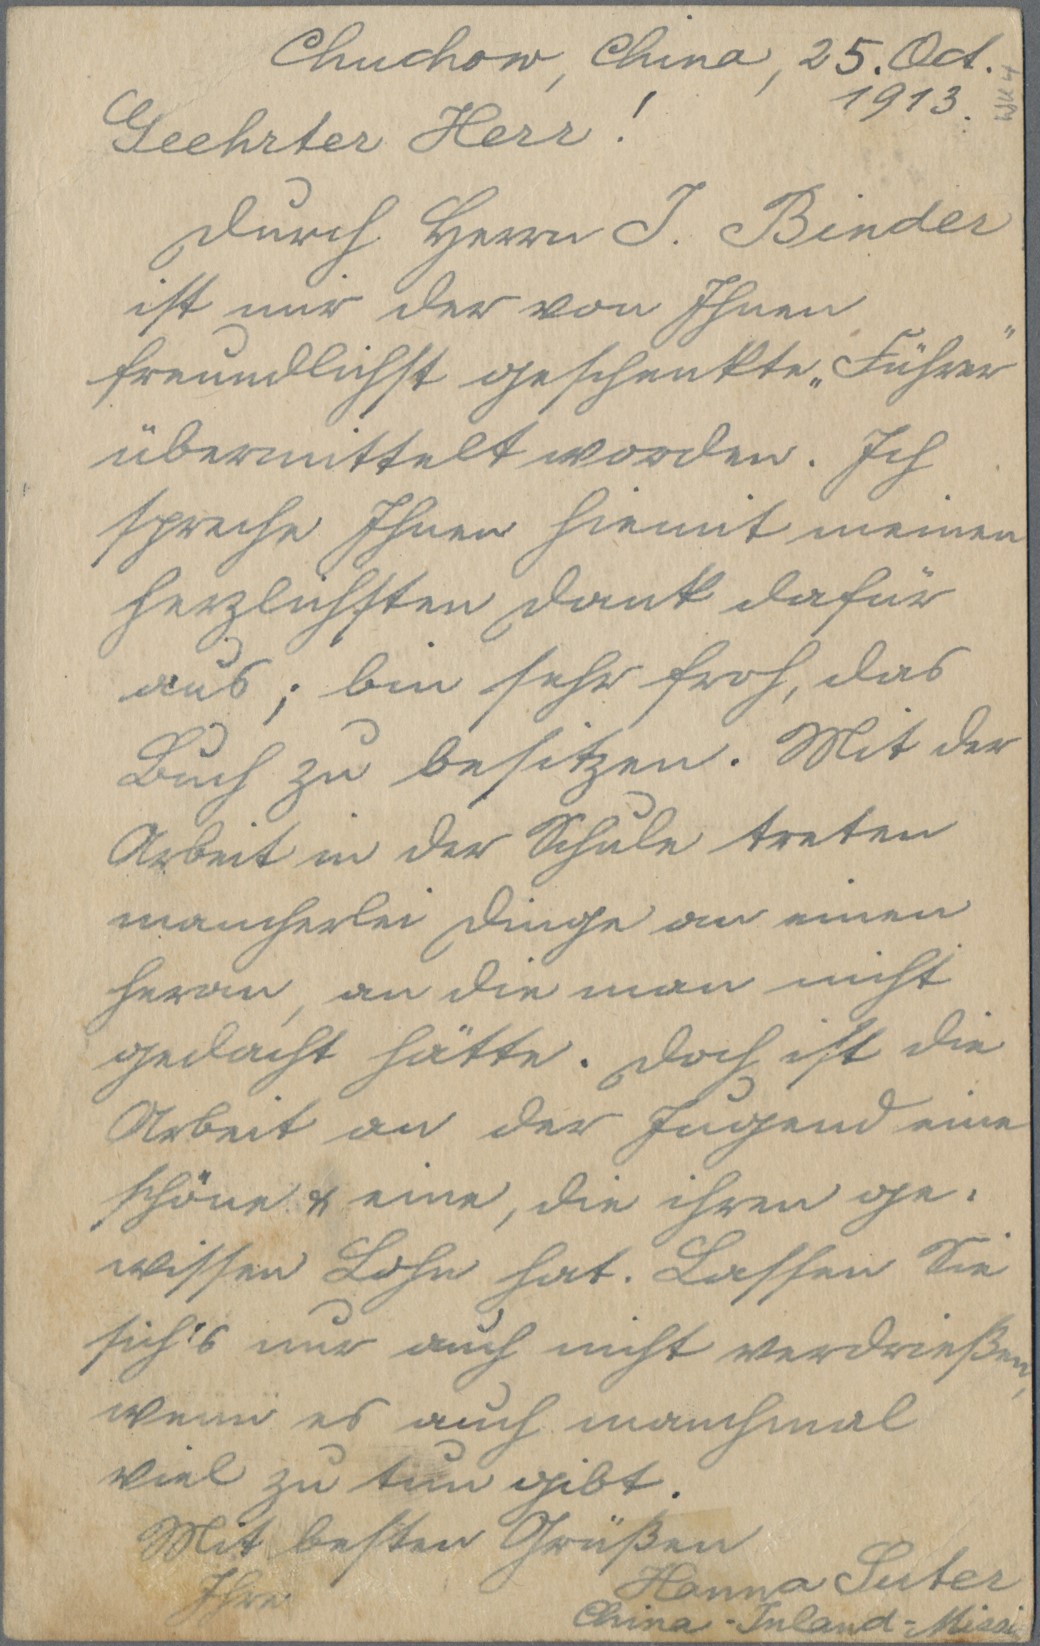 Chuchow, China, 25. Oct.
1913.
Geehrter Herr!
Durch Herrn J. Binder
ist mir der von Ihnen
freundlichst geschenkte „Führer"
übermittelt worden. Ich
spreche Ihnen hiemit meinen
herzlichsten Dank dafür
aus; bin sehr froh, das
Buch zu besitzen. Mit der
Arbeit in der Schule treten
mancherlei Dinge an einen
heran, an die man nicht
gedacht hätte. Doch ist die
Arbeit an der Jugend eine
schöne & eine, die ihren ge-
wissen Lohn hat. Lassen Sie
sich's nur auch nicht verdrießen,
wenn es auch manchmal
viel zu tun gibt.
Mit besten Grüßen
Ihre Hanna Suter
China-Inland-Missi